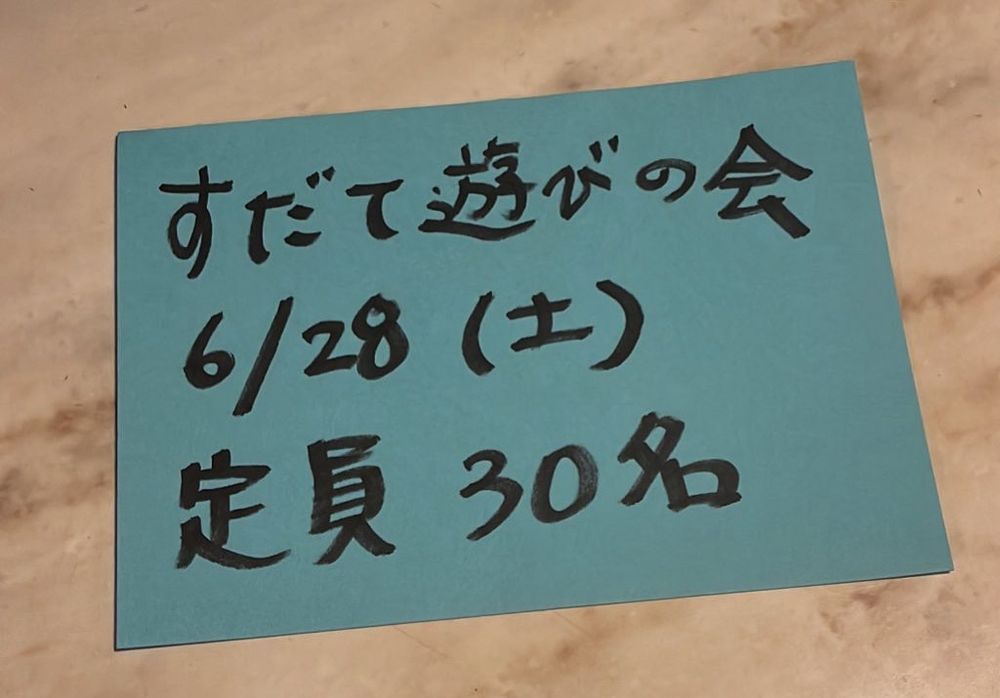 すだて遊びの会
6/28（土）
定員 30名